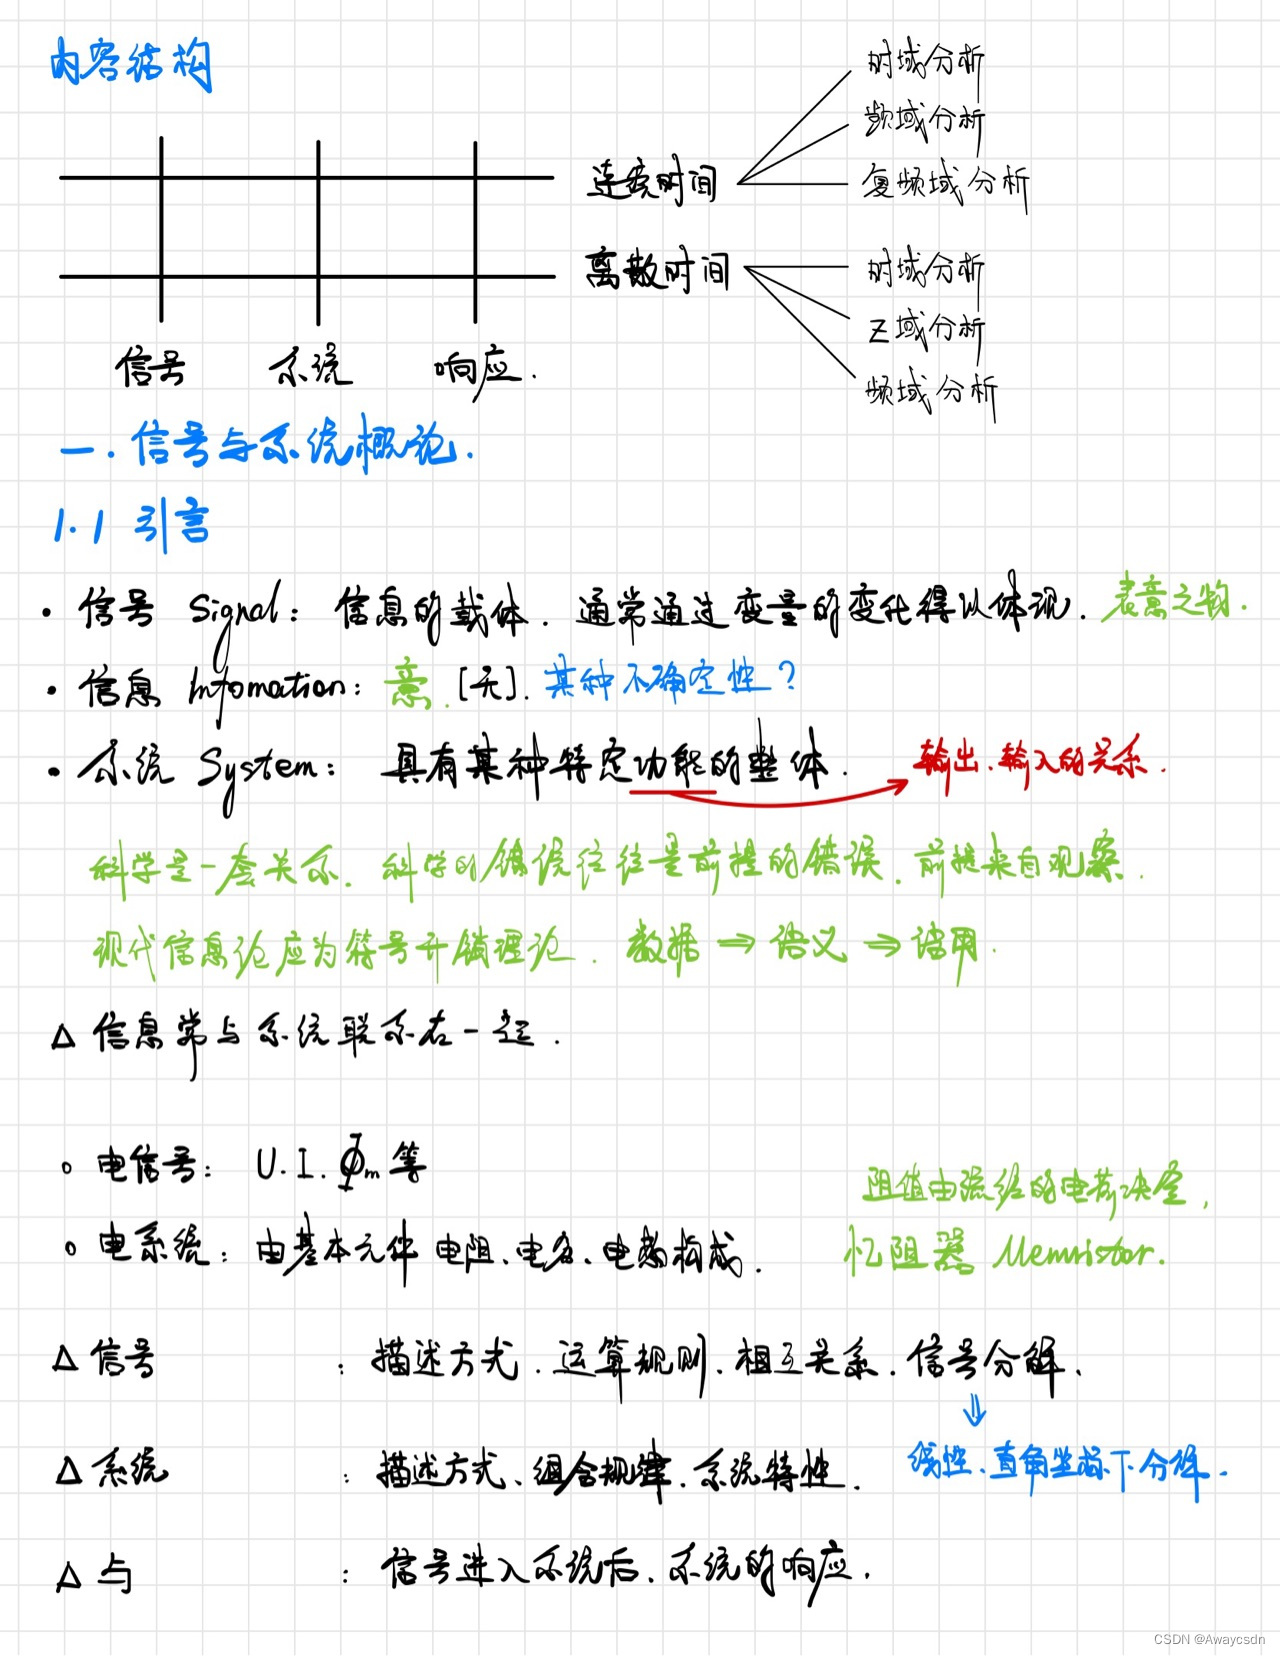 内容结构
时域分析
频域分析
连续时间
复频域分析
离散时间
时域分析
Z域分析
频域分析
信号 系统 响应.
一.信号与系统概论.
1.1 引言
• 信号 Signal: 信息的载体. 通常通过变量的变化得以体现. 表意之物.
• 信息 Infomation: 意. [天]. 某种不确定性?
• 系统 System: 具有某种特定功能的整体. 输出、输入的关系.
科学是一套关系. 科学的错误往往是前提的错误. 前提来自观察.
现代信息论应为符号开销理论. 数据 ⇒ 语义 ⇒ 语用.
△ 信息常与系统联系在一起.
○ 电信号: U. I. Φm 等
阻值由流经的电荷决定,
○ 电系统: 由基本元件 电阻、电容、电感构成.
忆阻器 Memristor.
△ 信号 : 描述方式. 运算规则. 相互关系. 信号分解.
⇓
△ 系统 : 描述方式、组合规律. 系统特性.
线性、直角坐标下分解.
△ 与 : 信号进入系统后. 系统的响应.
CSDN @Awaycsdn